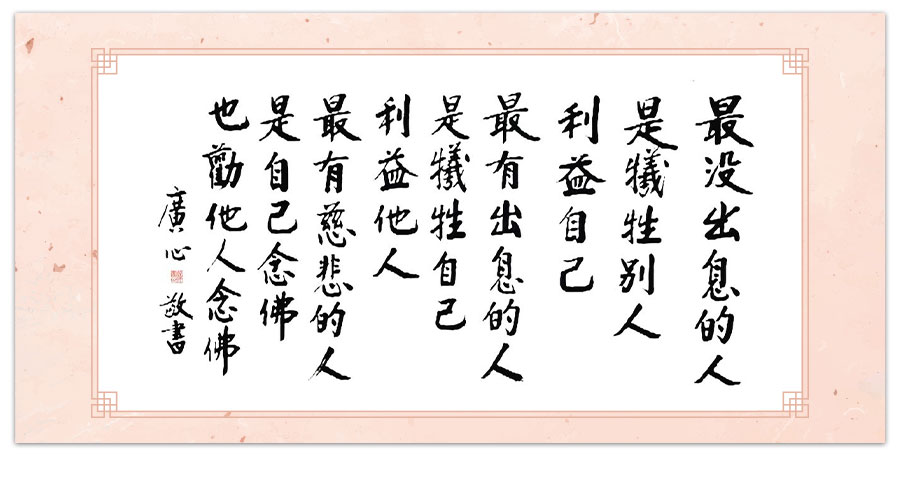 最没出息的人
是犧牲別人
利益自己
最有出息的人
是犧牲自己
利益他人
最有慈悲的人
是自己念佛
也勸他人念佛
廣心 敬書